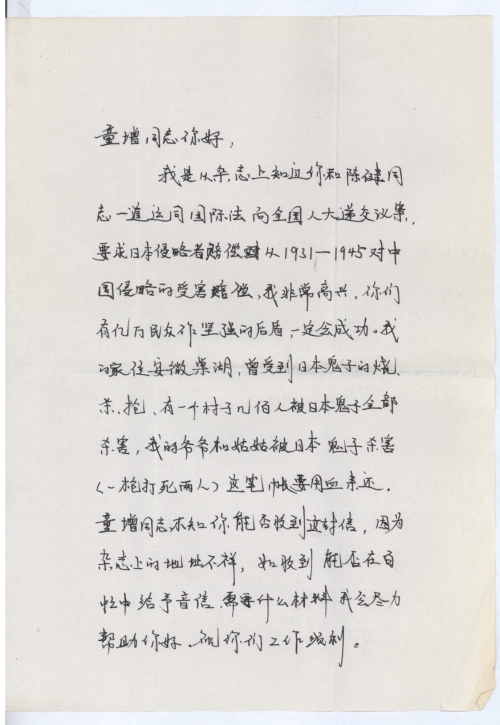 童增同志你好，
我是从杂志上知道你和陈健同
志一道运同国际法向全国人大递交议案，
要求日本侵略者赔偿从1931—1945对中
国侵略的受害赔偿，我非常高兴，你们
有亿万民众作坚强的后盾，一定会成功。我
的家住安徽巢湖，曾受到日本鬼子的烧、
杀、抢、有一个村子几佰人被日本鬼子全部
杀害，我的爷爷和姑姑被日本鬼子杀害
（一枪打死两人）这笔帐要用血来还．
童增同志不知你能否收到这封信，因为
杂志上的地址不祥，如收到能否在百
忙中给予音信．需要什么材料我会尽力
帮助你好、祝你们工作顺利。